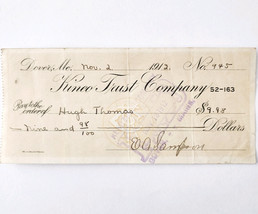 Dover, Me. Nov. 2 1912. No. 745
Kineo Trust Company 52-163
Pay to the order of Hugh Thomas $9.98
Nine and 98/100 Dollars